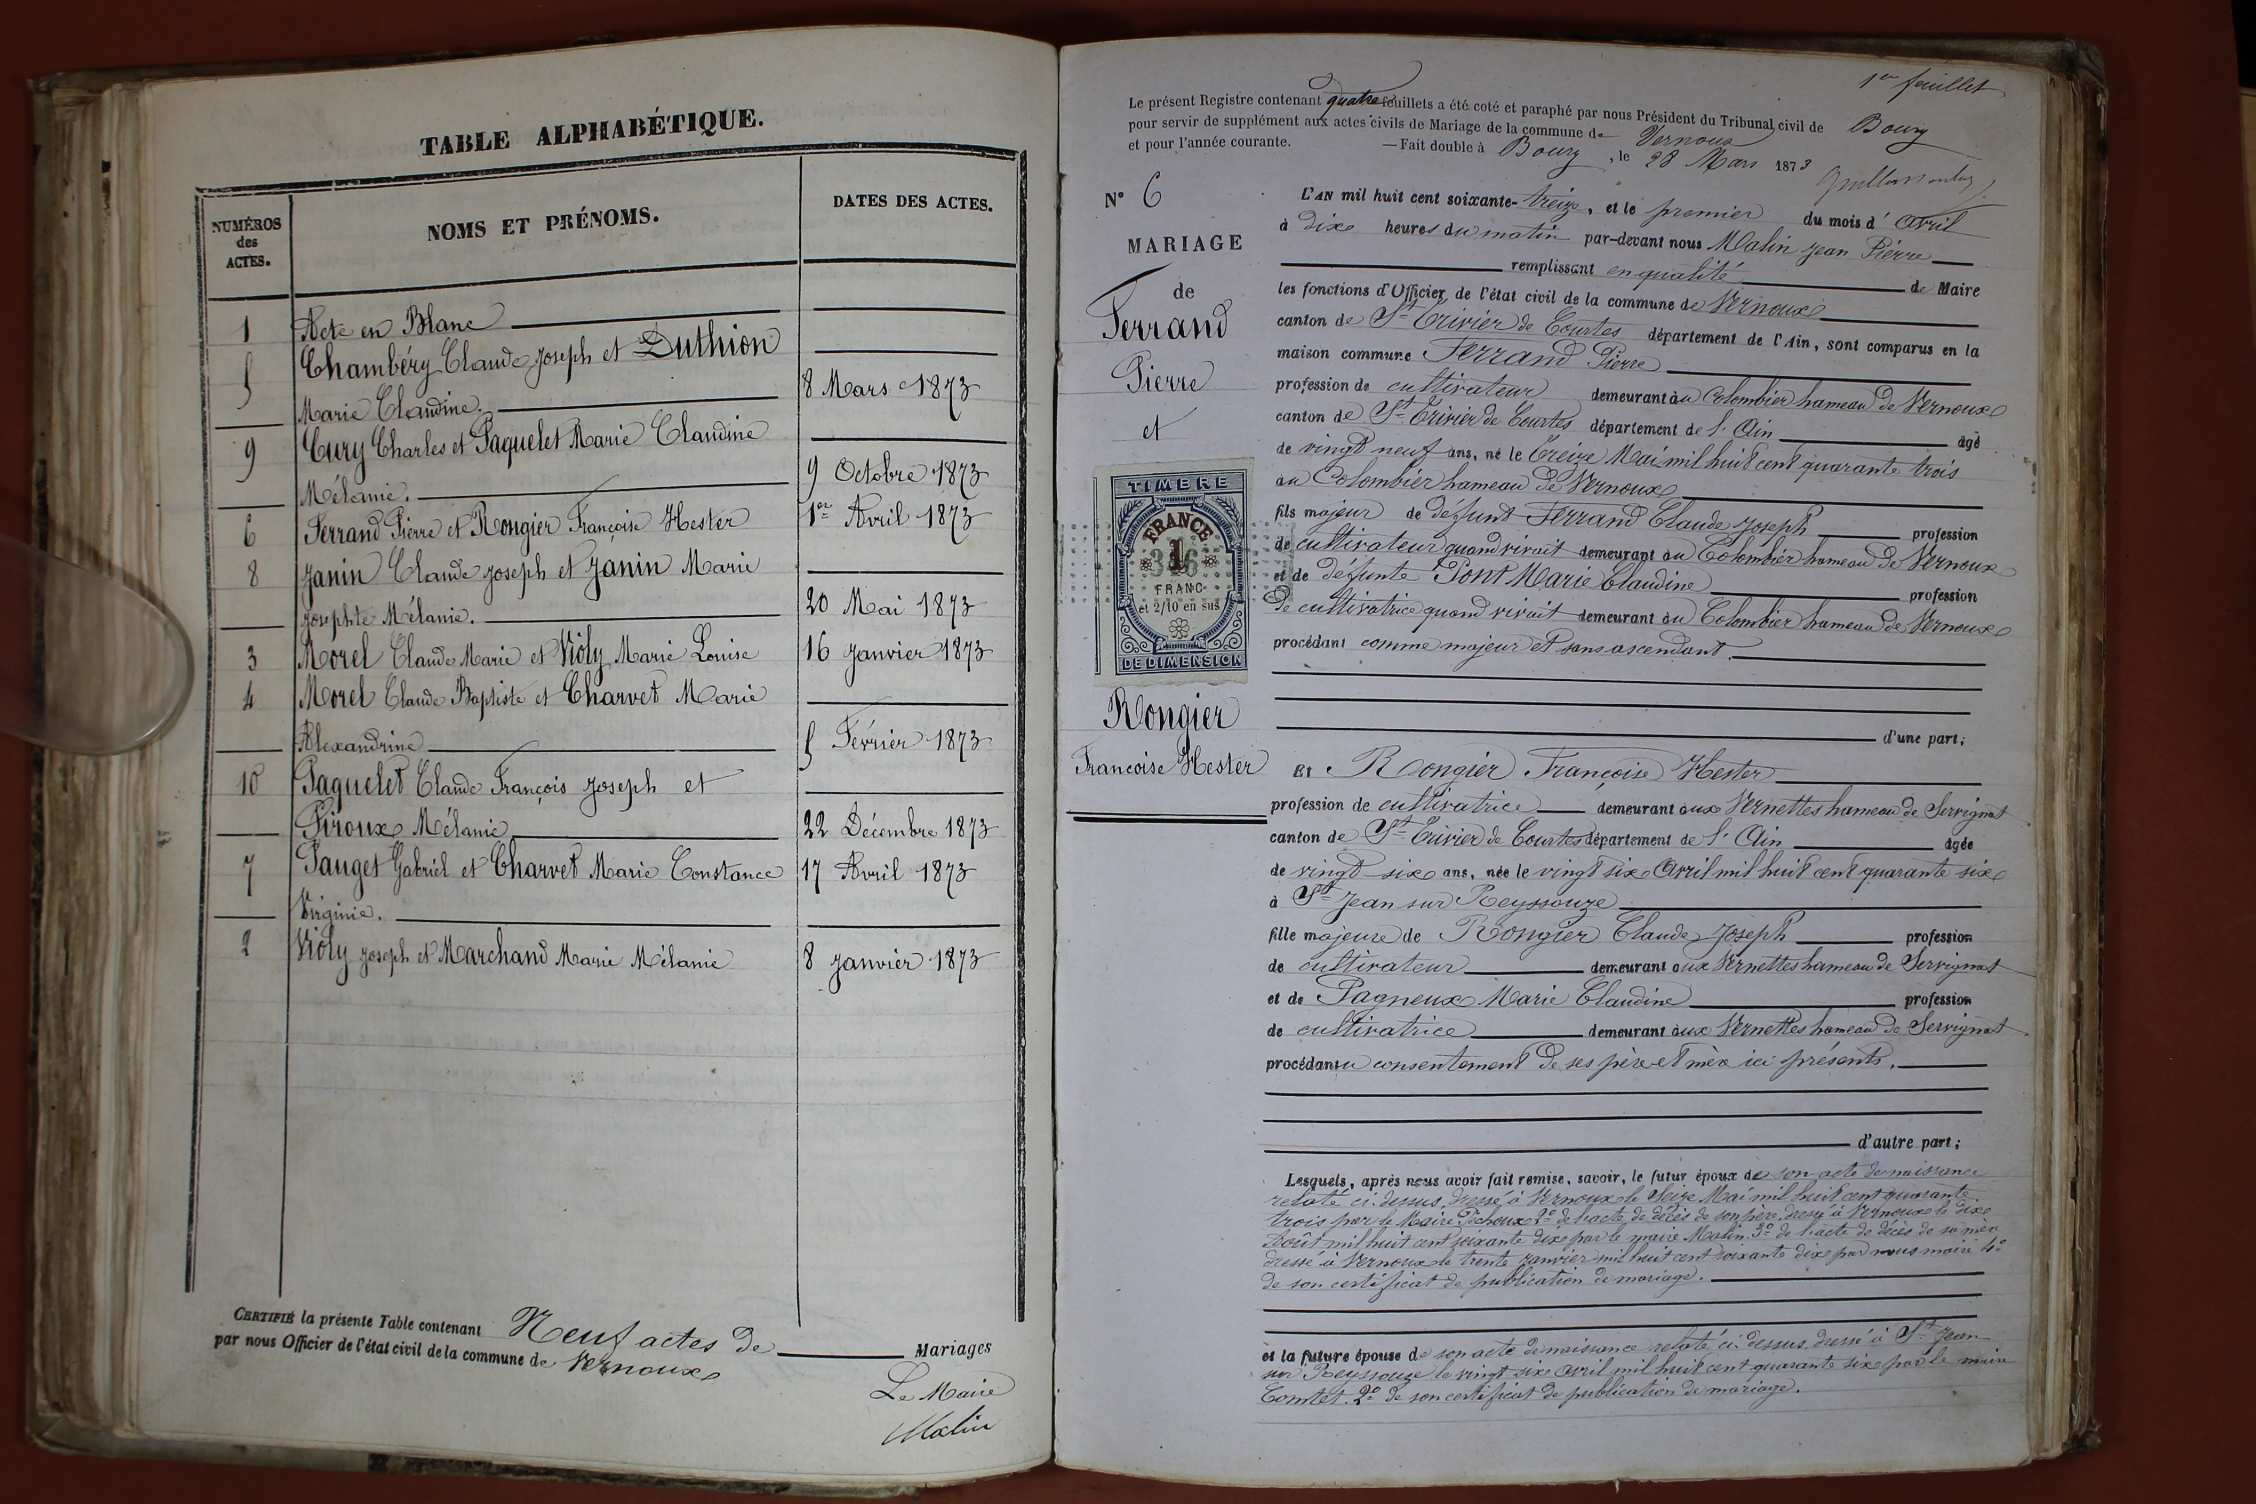 TABLE ALPHABÉTIQUE.
NUMÉROS des ACTES.
NOMS ET PRÉNOMS.
DATES DES ACTES.
1 Acte en Blanc
5 Chambéry Claude Joseph et Duthion
Marie Claudine. 8 Mars 1873
9 Cury Charles et Paquelet Marie Claudine
Mélanie. 9 Octobre 1873
6 Ferrand Pierre et Rongier Françoise Hester 1er Avril 1873
8 Janin Claude Joseph et Janin Marie
Josephte Mélanie. 20 Mai 1873
3 Morel Claude Marie et Violy Marie Louise 16 Janvier 1873
4 Morel Claude Baptiste et Charvet Marie
Alexandrine 5 Février 1873
10 Paquelet Claude François Joseph et
Piroux Mélanie 22 Décembre 1873
7 Pauget Gabriel et Charvet Marie Constance 17 Avril 1873
Virginie.
2 Violy Joseph et Marchand Marie Mélanie 8 Janvier 1873
CERTIFIÉ la présente Table contenant Neuf actes de Mariages
par nous Officier de l'état civil de la commune de Vernoux
Le Maire
Malin
1er feuillet
Le présent Registre contenant quatre feuillets a été coté et paraphé par nous Président du Tribunal civil de Bourg
pour servir de supplément aux actes civils de Mariage de la commune de Vernoux
et pour l'année courante. —Fait double à Bourg, le 28 Mars 1873
N° 6
MARIAGE
de
Ferrand
Pierre
et
TIMBRE
FRANCE
1
FRANC
et 2/10 en sus
DE DIMENSION
Rongier
Françoise Hester
L'AN mil huit cent soixante-treize, et le premier du mois d'avril
à dix heures du matin par-devant nous Malin Jean Pierre
remplissant en qualité de Maire
les fonctions d'Officier de l'état civil de la commune de Vernoux
canton de St Trivier de Courtes département de l'Ain, sont comparus en la
maison commune Ferrand Pierre
profession de cultivateur demeurant au Colombier hameau de Vernoux
canton de St Trivier de Courtes département de l'Ain âgé
de vingt neuf ans, né le treize Mai mil huit cent quarante trois
au Colombier hameau de Vernoux
fils majeur de défunt Ferrand Claude Joseph profession
de cultivateur quand vivait demeurant au Colombier hameau de Vernoux
et de défunte Pont Marie Claudine profession
de cultivatrice quand vivait demeurant au Colombier hameau de Vernoux
procédant comme majeur et sans ascendant.
d'une part;
Et Rongier Françoise Hester
profession de cultivatrice demeurant aux Vernettes hameau de Servignat
canton de St Trivier de Courtes département de l'Ain âgée
de vingt-six ans, née le vingt six Avril mil huit cent quarante six
à St Jean sur Reyssouze
fille majeure de Rongier Claude Joseph profession
de cultivateur demeurant aux Vernettes hameau de Servignat
et de Pagneux Marie Claudine profession
de cultivatrice demeurant aux Vernettes hameau de Servignat
procédant au consentement de ses père et mère ici présents.
d'autre part;
Lesquels, après nous avoir fait remise, savoir, le futur époux de son acte de naissance
relaté ci-dessus dressé à Vernoux le Seize Mai mil huit cent quarante
trois par le Maire Pichoux 2° de l'acte de décès de son père dressé à Vernoux le dix
Août mil huit cent soixante dix par le maire Malin. 3° de l'acte de décès de sa mère
dressé à Vernoux le trente Janvier mil huit cent soixante dix par nous maire 4°
de son certificat de publication de mariage.
et la future épouse de son acte de naissance relaté ci-dessus dressé à St Jean
sur Reyssouze le vingt six avril mil huit cent quarante six par le maire
Comtet. 2° de son certificat de publication de mariage.